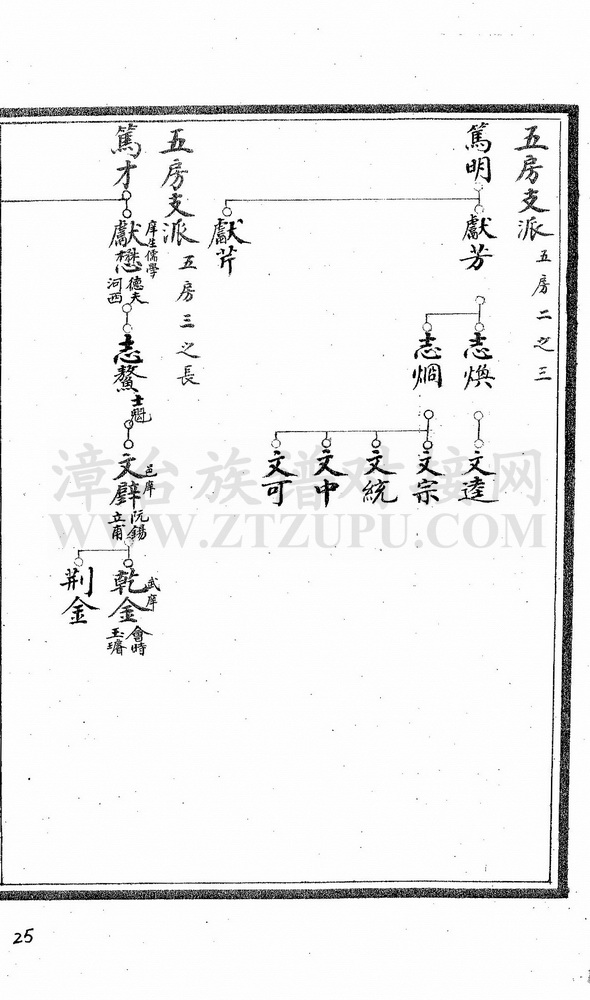 五房支派 五房二之三
篤明
獻芳
獻芹
志煥
志烱
文逵
文宗
文統
文中
文可
五房支派 五房三之長
篤才
獻懋
庠生儒學
德夫
河西
志鰲
士魁
文璧
邑庠
沅錫
立甫
乾金
武庠
會時
玉璿
荆金
漳台族谱对接网
WWW.ZTZUPU.COM
25